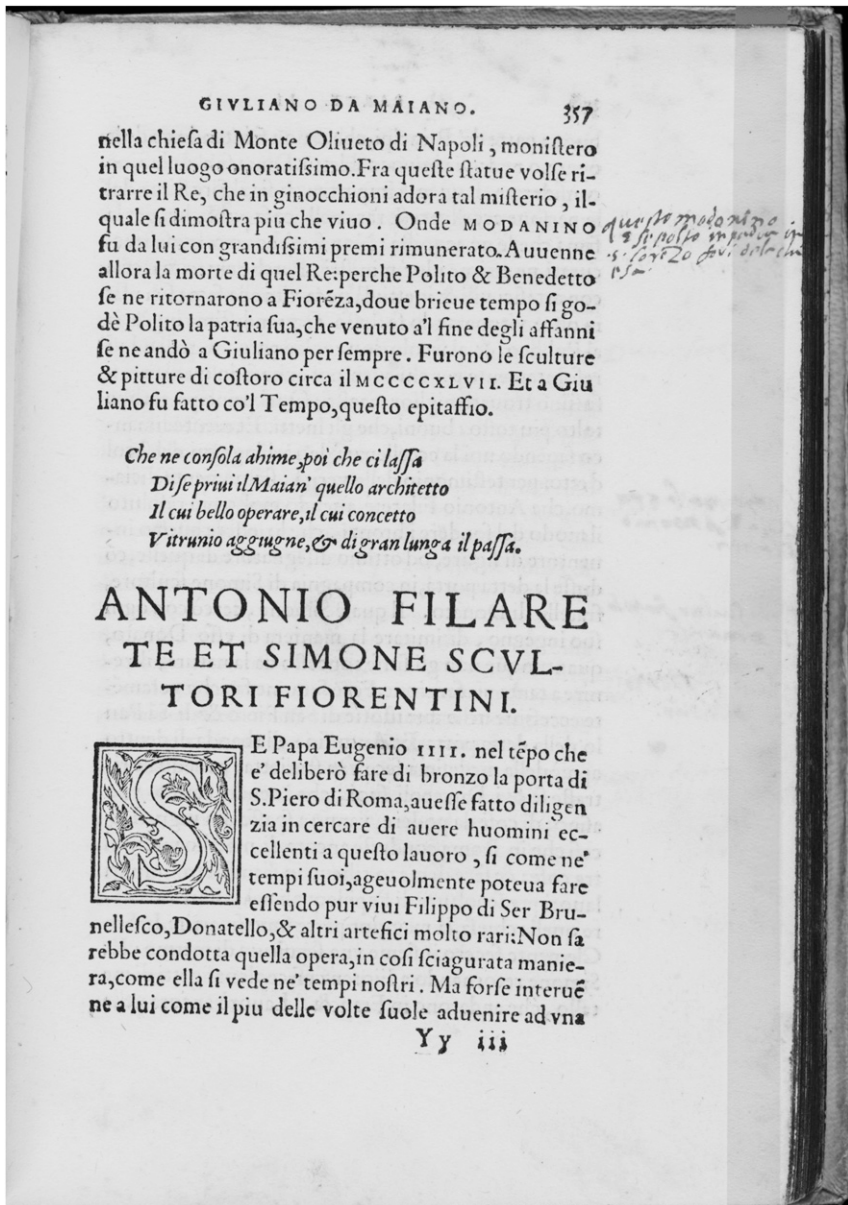 GIVLIANO DA MAIANO. 357
nella chieſa di Monte Oliueto di Napoli, moniſtero
in quel luogo onoratiſsimo. Fra queſte ſtatue volſe ri-
trarre il Re, che in ginocchioni adora tal miſterio, il-
quale ſi dimoſtra piu che viuo. Onde MODANINO
fu da lui con grandiſsimi premi rimunerato. Auuenne
allora la morte di quel Re: perche Polito & Benedetto
ſe ne ritornarono a Fiorēza, doue brieue tempo ſi go-
dè Polito la patria ſua, che venuto a'l fine degli affanni
ſe ne andò a Giuliano per ſempre. Furono le ſculture
& pitture di coſtoro circa il MCCCCXLVII. Et a Giu
liano fu fatto co'l Tempo, queſto epitaffio.
queſto modonino
ſi poſto in
S. Lorēzo fori de la chi
eſa
Che ne conſola ahime, poi che ci laſſa
Di ſe priui il Maian' quello architetto
Il cui bello operare, il cui concetto
Vitrunio aggiugne, & di gran lunga il paſſa.
ANTONIO FILARE
TE ET SIMONE SCVL-
TORI FIORENTINI.
SE Papa Eugenio IIII. nel tēpo che
e' deliberò fare di bronzo la porta di
S. Piero di Roma, aueſſe fatto diligen
zia in cercare di auere huomini ec-
cellenti a queſto lauoro, ſi come ne'
tempi ſuoi, ageuolmente poteua fare
eſſendo pur viui Filippo di Ser Bru-
nelleſco, Donatello, & altri artefici molto rari: Non ſa
rebbe condotta quella opera, in coſi ſciagurata manie-
ra, come ella ſi vede ne' tempi noſtri. Ma forſe interuē
ne a lui come il piu delle volte ſuole aduenire ad vna
Yy iii